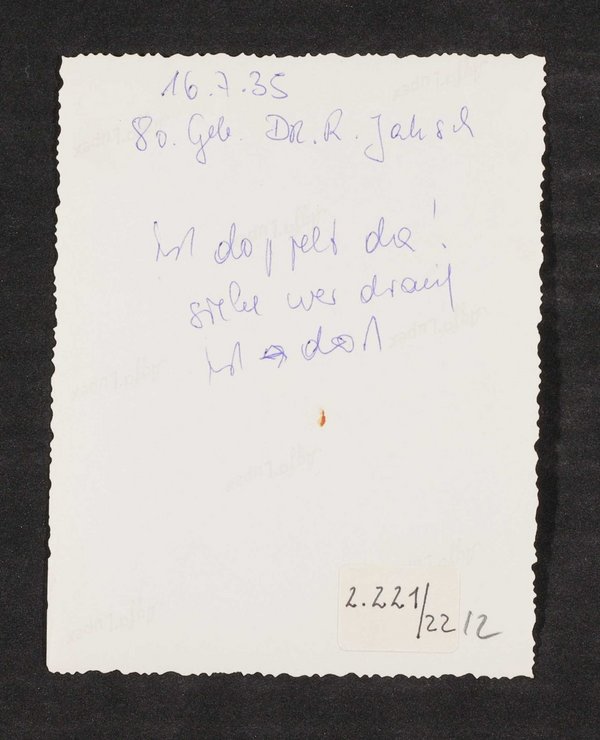 16.7.35
80. Geb. DR. R. Jaksch
ist doppelt da!
siehe wer drauf
ist → dort
2.221/22/2